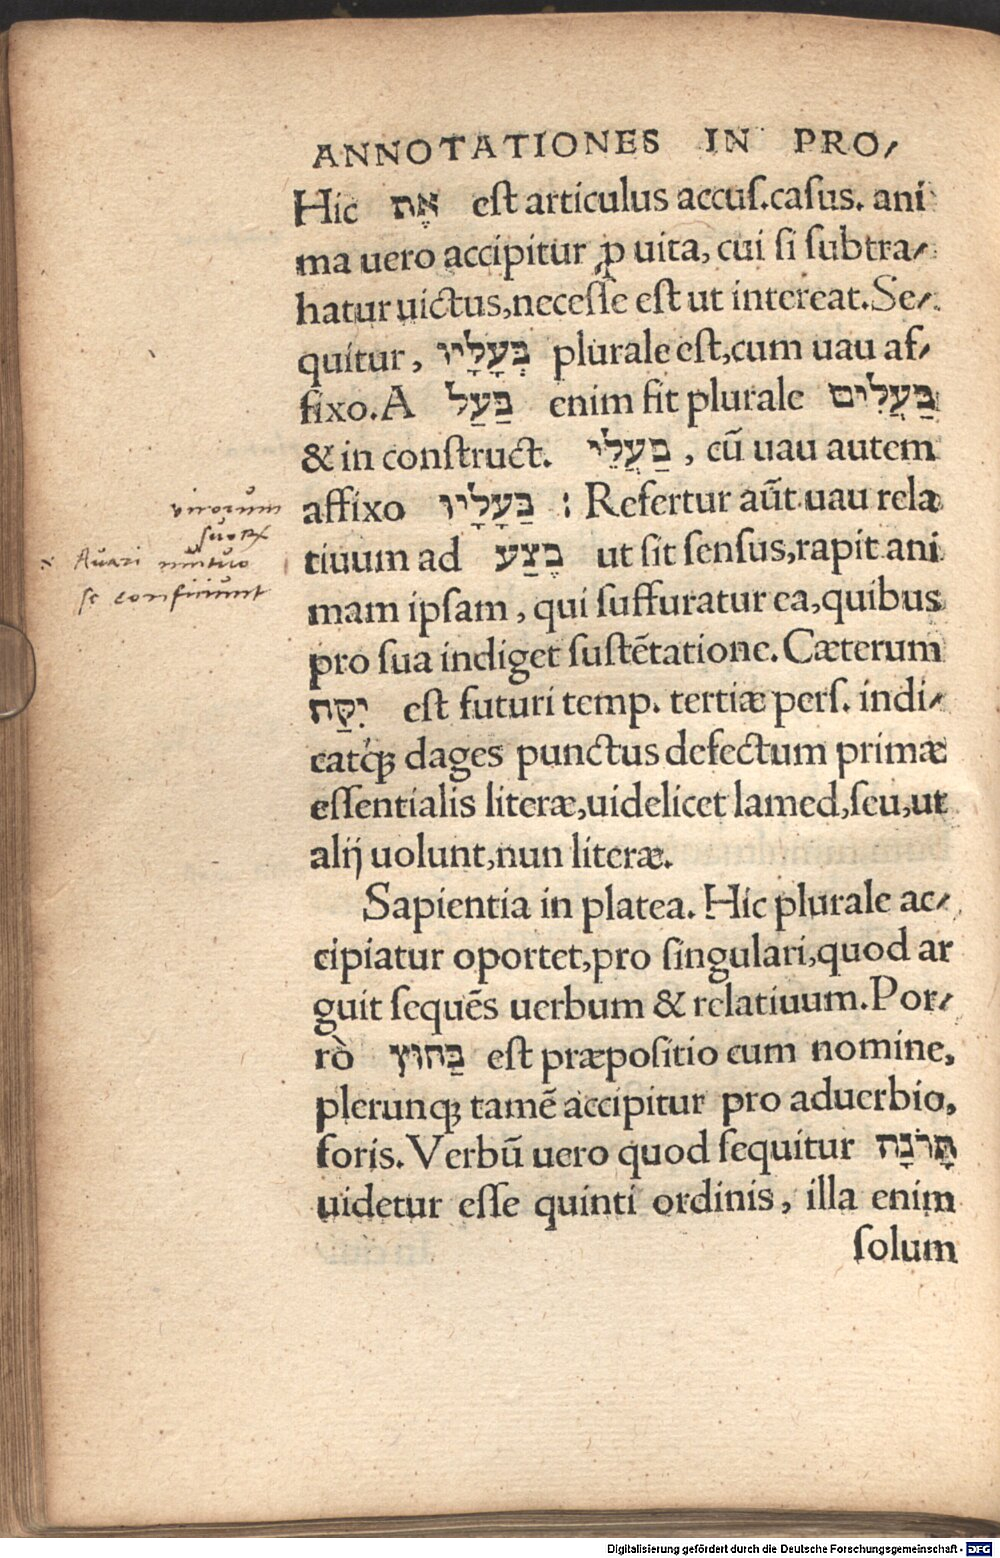 ANNOTATIONES IN PRO⸗
Hic אֶת est articulus accuſ.caſus. ani
ma uero accipitur ꝓ uita, cui ſi ſubtra⸗
hatur uictus,neceſſe est ut intereat.Se⸗
quitur, בְּעָלָיו plurale est,cum uau af⸗
fixo.A בַּעַל enim fit plurale בַּעֲלִים
& in conſtruct. בַּעֲלֵי , cū uau autem
affixo בַּעָלָיו : Refertur aūt uau rela
tiuum ad בֶּצַע ut ſit ſenſus,rapit ani
mam ipſam, qui ſuffuratur ea,quibus
pro ſua indiget ſustētatione. Cæterum
יִקַּח est futuri temp. tertiæ perſ. indi⸗
catꝙ́ dages punctus defectum primæ
eſſentialis literæ,uidelicet lamed,ſeu,ut
alij uolunt,nun literæ.
Sapientia in platea. Hic plurale ac⸗
cipiatur oportet,pro ſingulari,quod ar
guit ſequēs uerbum & relatiuum.Por⸗
rò בַּחוּץ est præpoſitio cum nomine,
plerunꝙ tamē accipitur pro aduerbio,
foris. Verbū uero quod ſequitur תָּרֹנָּה
uidetur eſſe quinti ordinis, illa enim
ſolum
virorum
ſuoꝝ
Avari mutuo
ſe conficiunt
Digitalisierung gefördert durch die Deutsche Forschungsgemeinschaft - DFG